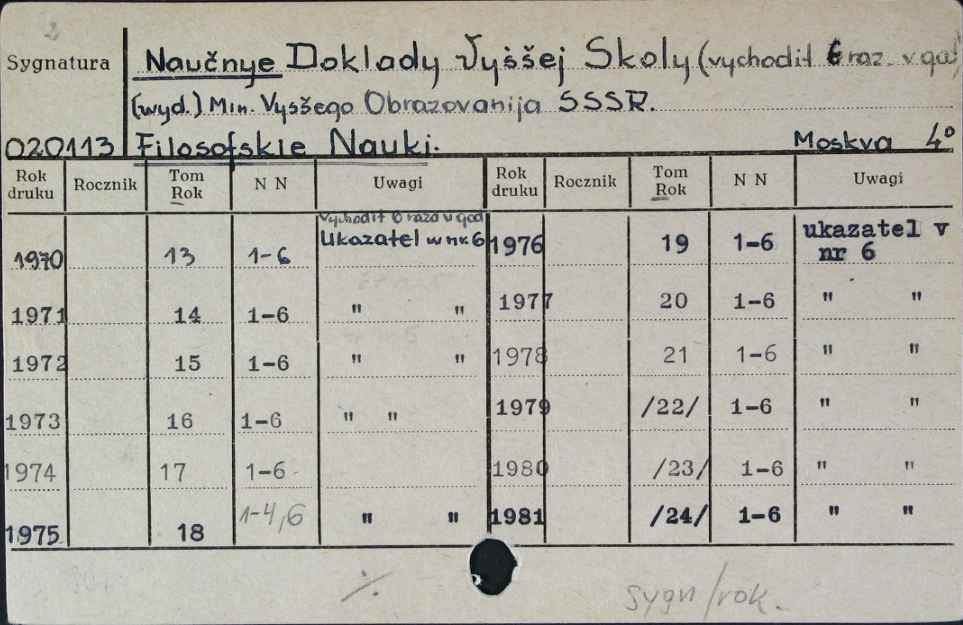 2
Sygnatura Naučnye Doklady Vyššej Skoly (vychodit 6 raz v god)
(wyd.) Min. Vysšego Obrazovanija SSSR.
020113 Filosofskie Nauki. Moskva 4°
Rok druku Rocznik Tom Rok N N Uwagi Rok druku Rocznik Tom Rok N N Uwagi
Vychodit 6 raza v god
1970 13 1-6 Ukazatel w nr. 6 1976 19 1-6 ukazatel v nr 6
1971 14 1-6 " " 1977 20 1-6 " "
1972 15 1-6 " " 1978 21 1-6 " "
1973 16 1-6 " " 1979 /22/ 1-6 " "
1974 17 1-6 1980 /23/ 1-6 " "
1975 18 1-4,6 " " 1981 /24/ 1-6 " "
sygn/rok.